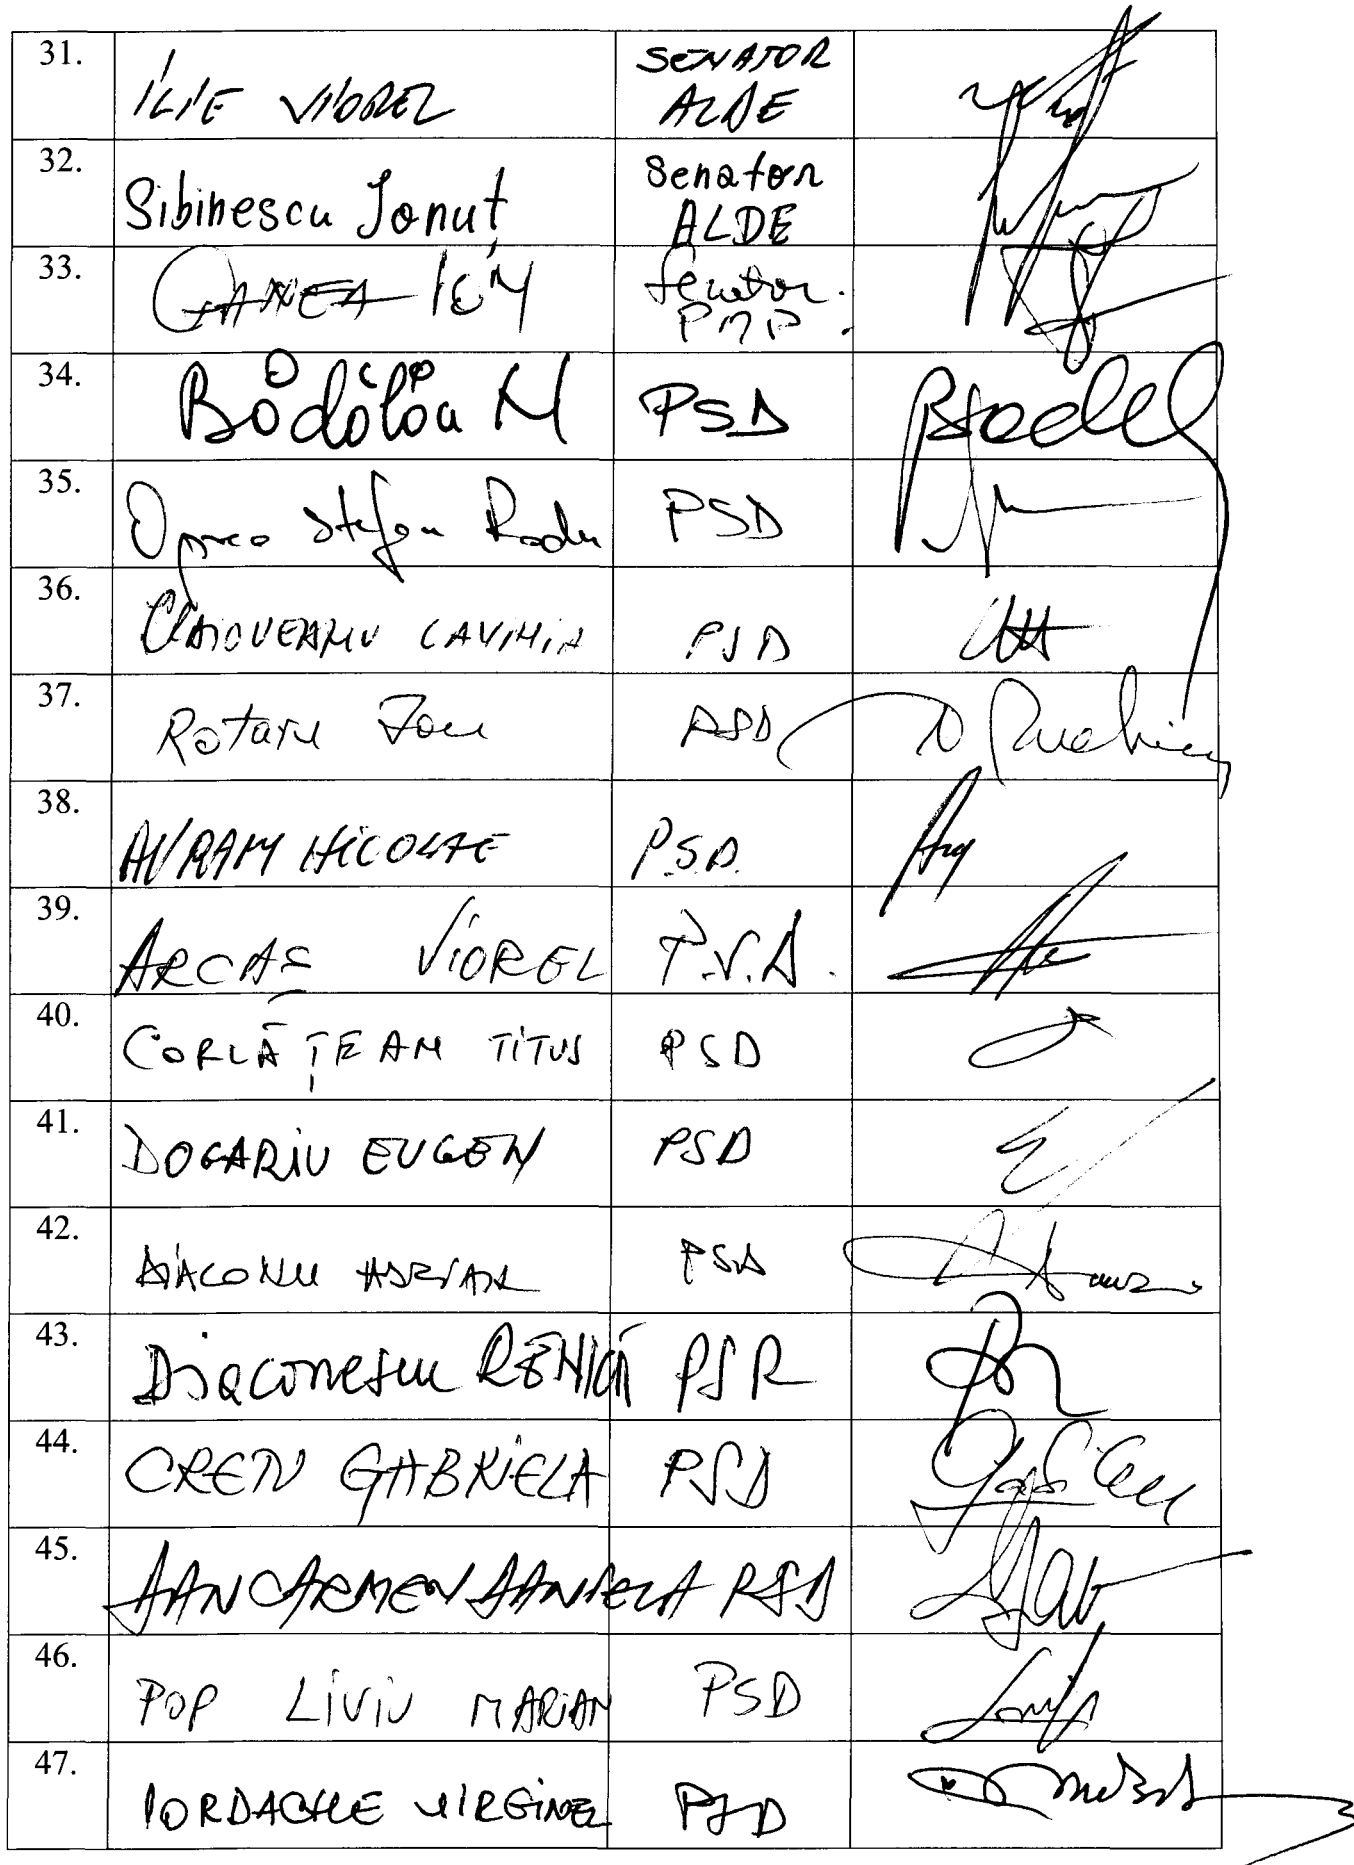 31. ILIE VIOREL SENATOR ALDE
32. Sibinescu Ionuț Senator ALDE
33. GANEA ION Senator PMP.
34. Bădălău N PSD
35. Oprea Stefan Radu PSD
36. CRAIOVEANU LAVINIA PSD
37. Rotaru Ion PSD
38. AVRAM NICOLAE P.S.D.
39. ARCAȘ VIOREL P.S.D.
40. CORLĂȚEAN TITUS PSD
41. DOGARIU EUGEN PSD
42. DIACONU ADRIAN PSD
43. Diaconescu RENICĂ PSR
44. CREȚU GABRIELA PSD
45. DAN CARMEN DANIELA PSD
46. POP LIVIU MARIAN PSD
47. IORDACHE VIRGINEL PSD